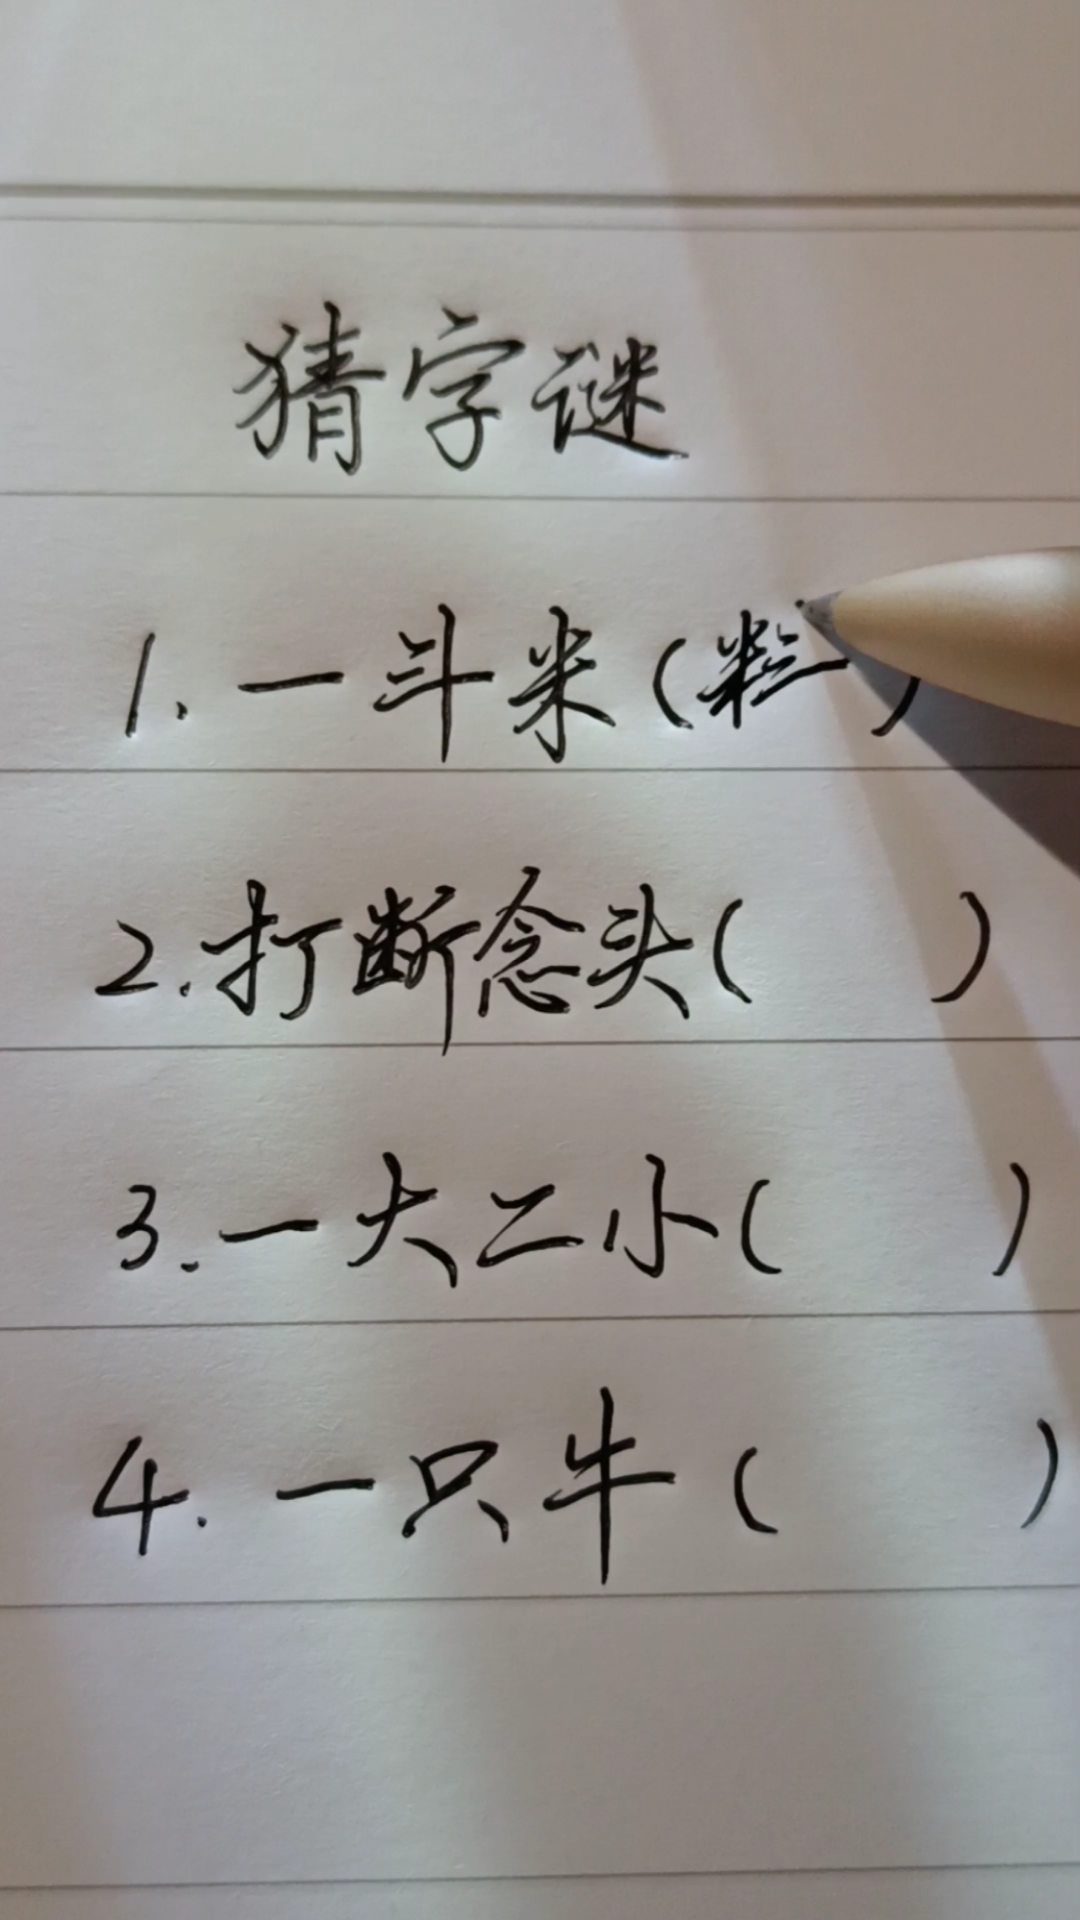 猜字谜
1.一斗米( )
2.打断念头( )
3.一大二小( )
4.一只牛( )